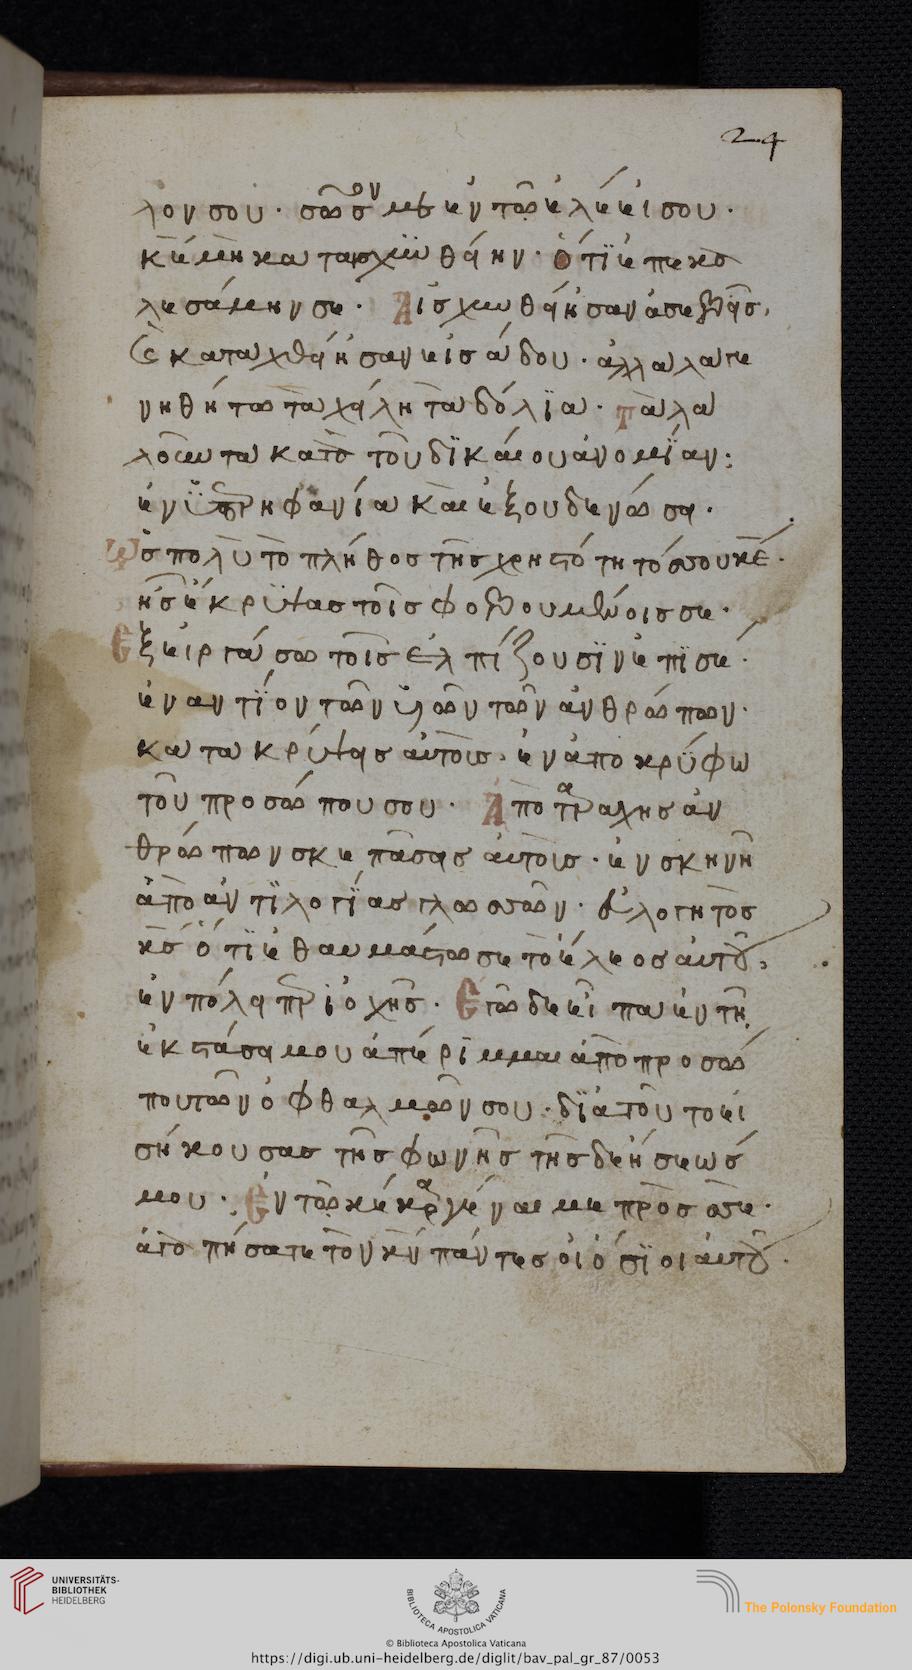 24
λον σου· σῶσον με ἐν τῶ ἐλέει σου·
κε μὴ καταισχυνθείην· ὅτι ἐπεκα
λεσάμην σε· Αἰσχυνθείησαν ἀσεβεῖς,
καταχθείησαν εἰς ἅδου· ἄλλαλα γε
νηθήτω τὰ χείλη τὰ δόλια· τὰ λα
λοῦντα κατὰ τοῦ δικαίου ἀνομίαν:
ἐν ὑπερηφανία καὶ ἐξουδενώσει·
Ως πολὺ τὸ πλῆθος τῆς χρηστότητός σου κε·
ἧς ἔκρυψας τοῖς φοβουμένοις σε·
Εξειργάσω τοῖς ἐλπίζουσιν ἐπὶ σέ·
ἐναντίον τῶν υἱῶν τῶν ἀνθρώπων·
κατακρύψεις αὐτοὺς· ἐν ἀποκρύφω
τοῦ προσώπου σου· Ἀπὸ ταραχῆς ἀν
θρώπων σκεπάσεις αὐτοὺς· ἐν σκηνῆ
ἀπὸ ἀντιλογίας γλωσσῶν· εὐλογητὸς
κς ὅτι ἐθαυμάστωσε τὸ ἔλεος αὐτοῦ,
ἐν πόλει περιοχῆς· Εγὼ δὲ εἶπα ἐν τῆ
ἐκστάσει μου ἀπέριμμαι ἀπὸ προσώ
που τῶν ὀφθαλμῶν σου· διὰ τοῦτο εἰ
σήκουσας τῆς φωνῆς τῆς δεήσεώς
μου· Εν τῶ κεκραγέναι με πρὸς σε·
ἀγαπήσατε τὸν κν πάντες οἱ ὅσιοι αὐτοῦ·
UNIVERSITÄTS-
BIBLIOTHEK
HEIDELBERG
BIBLIOTECA APOSTOLICA VATICANA
The Polonsky Foundation
© Biblioteca Apostolica Vaticana
https://digi.ub.uni-heidelberg.de/diglit/bav_pal_gr_87/0053